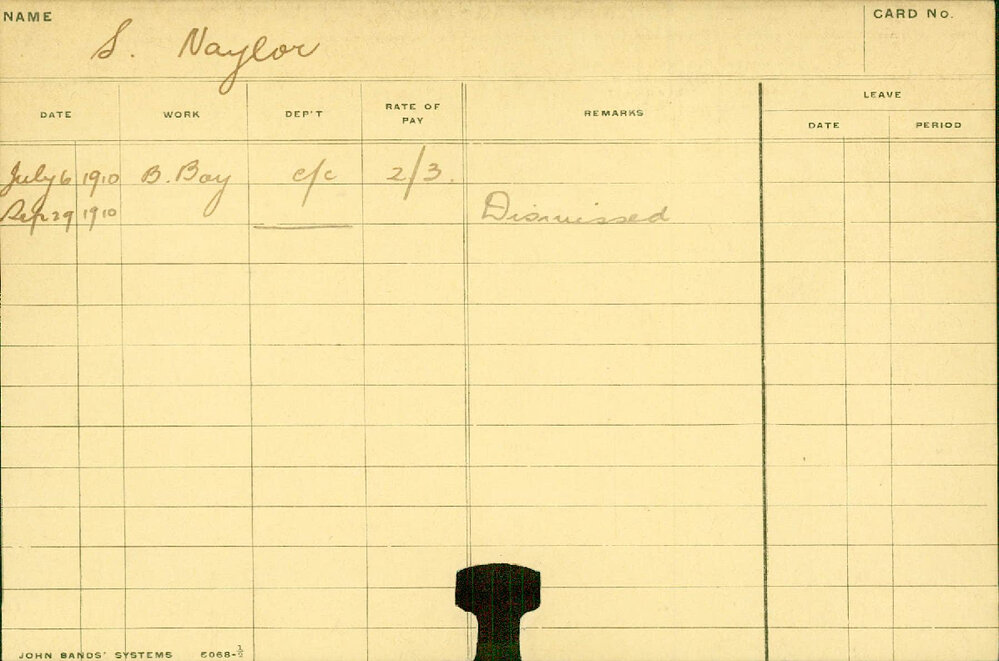 NAME
S. Naylor
CARD No.
DATE WORK DEP'T RATE OF PAY REMARKS LEAVE
DATE PERIOD
July 6 1910 B. Boy c/c 2/3.
Sep 29 1910 Dismissed
JOHN BANDS' SYSTEMS 5068-½